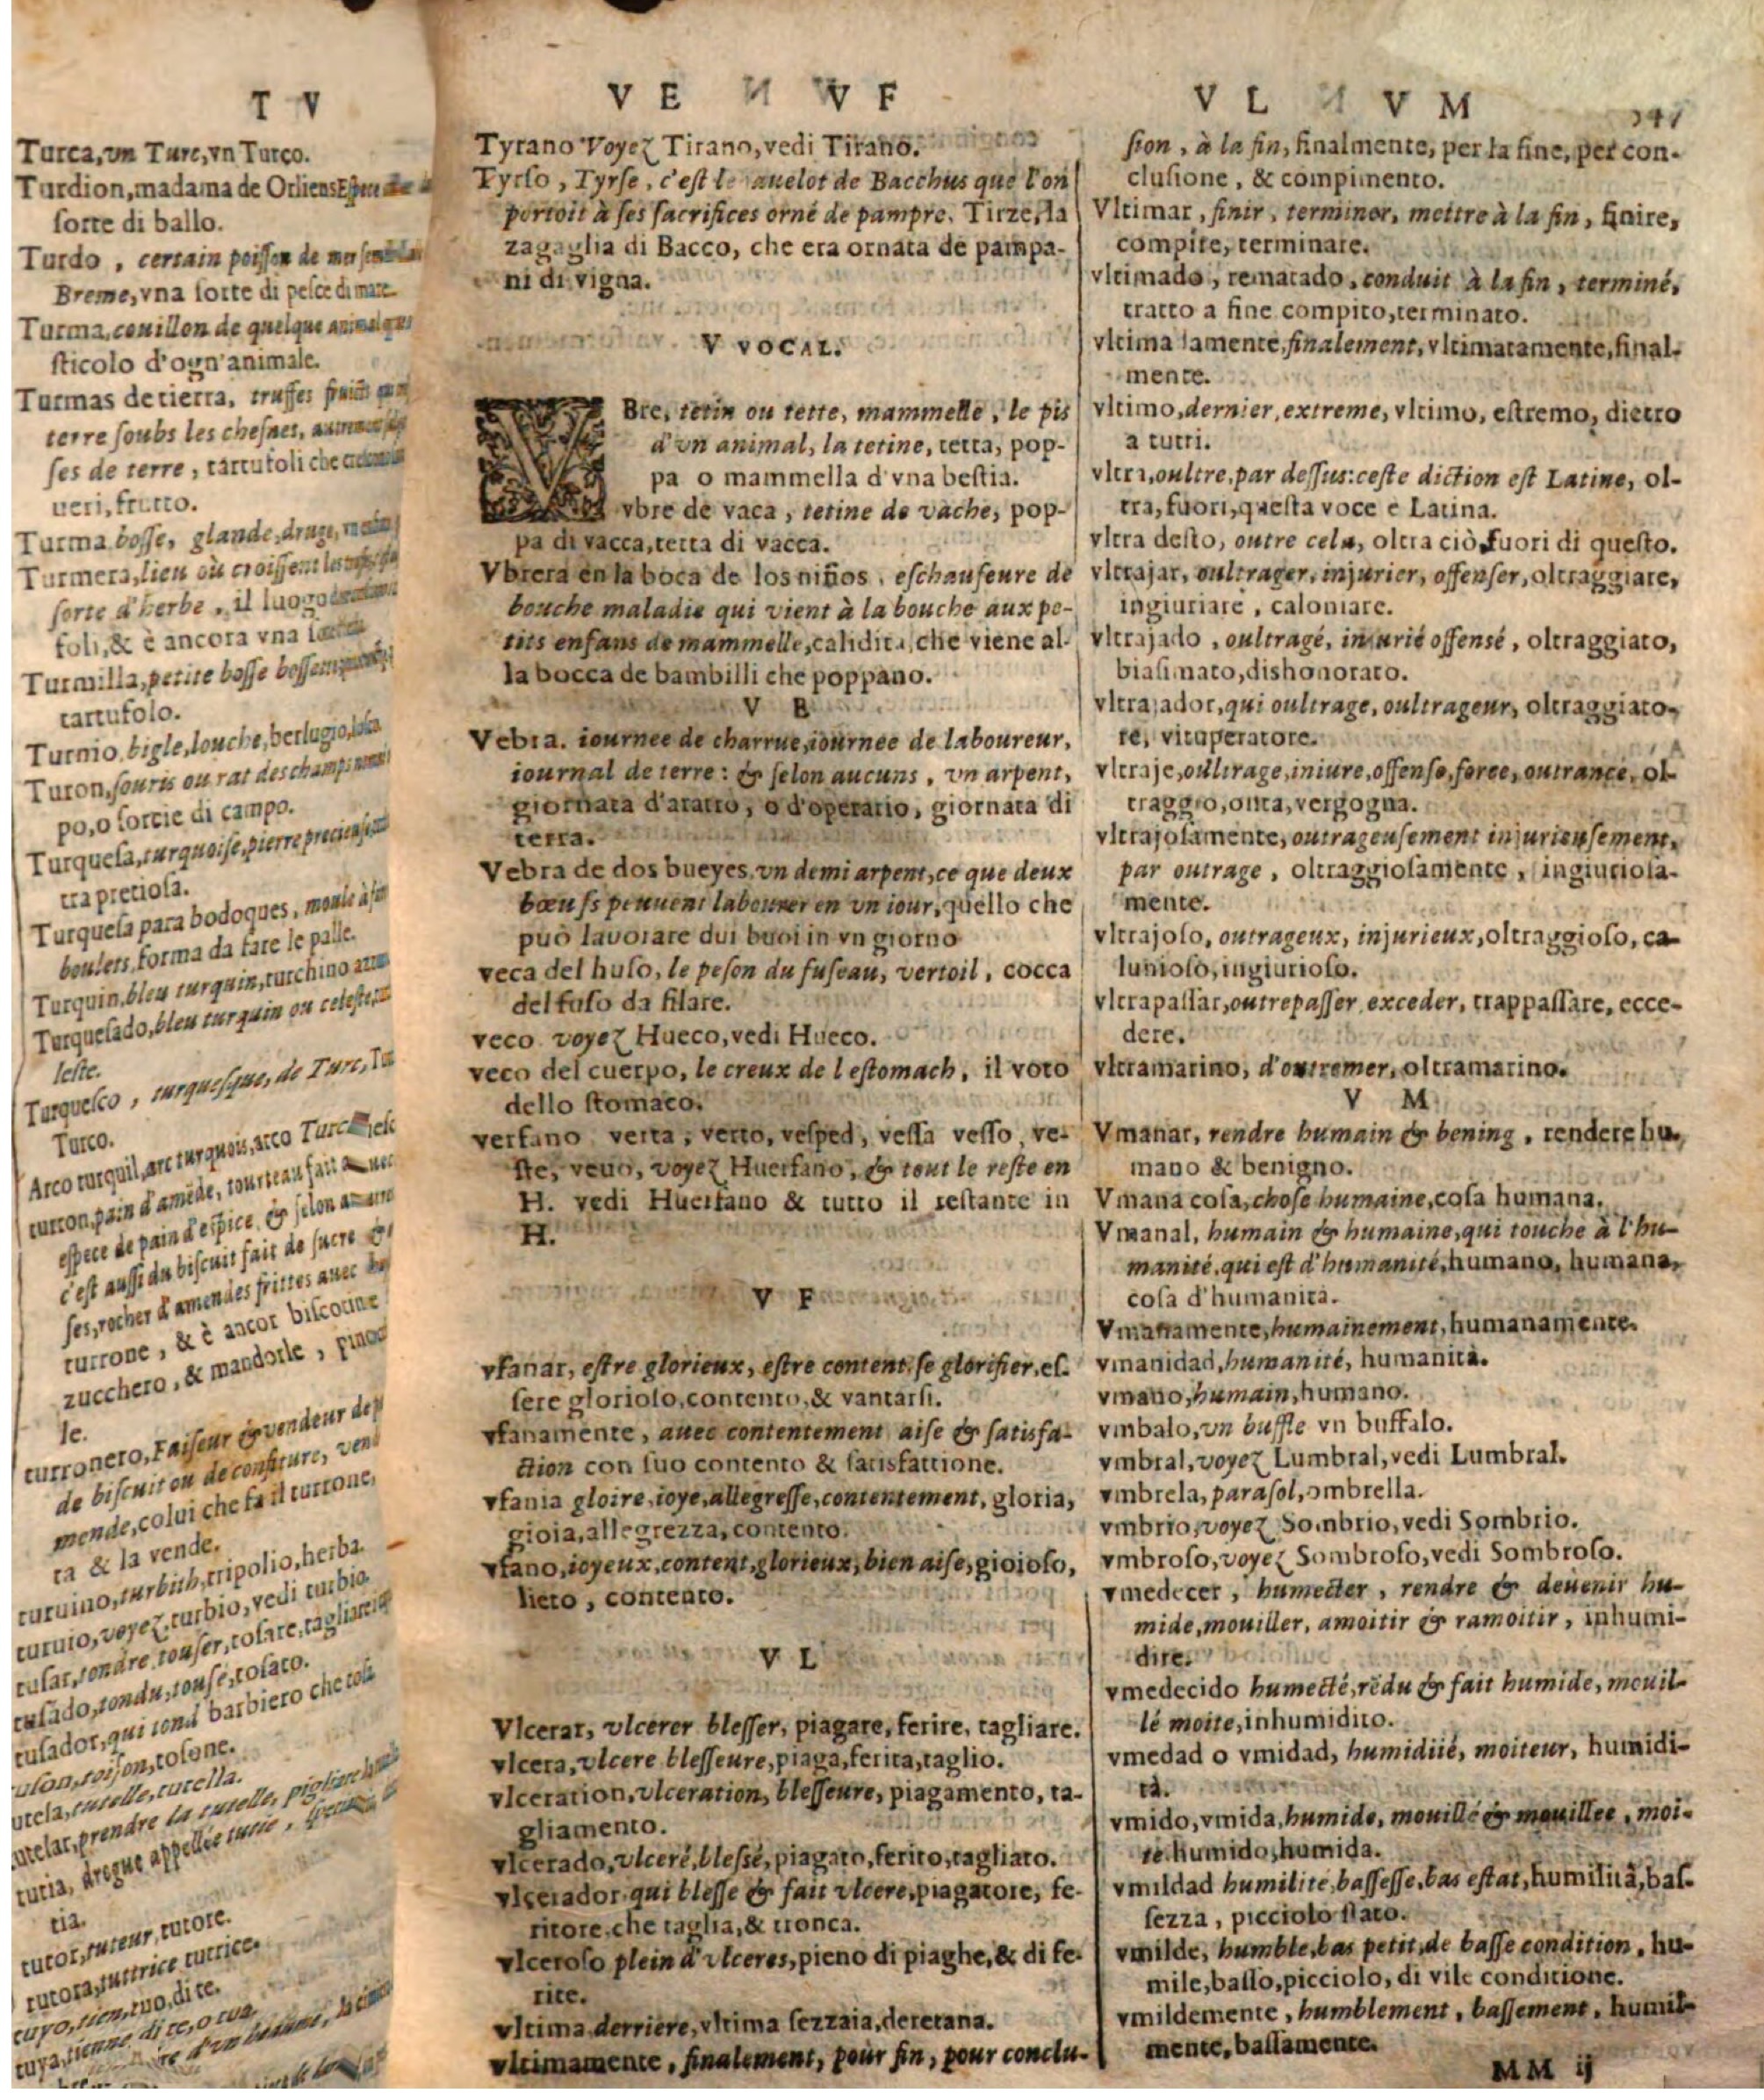 T V
Turca, vn Turc, vn Turco.
Turdion, madama de Orliens
sorte di ballo.
Turdo, certain poisson de mer
Breme, vna sorte di pesce di mare.
Turma, couillon de quelque animal
sticolo d'ogn'animale.
Turmas de tierra, truffes
terre soubs les chesnes,
ses de terre, tartufoli che
ueri, frutto.
Turma bosse, glande, drage,
Turmera, lieu où croissent les
sorte d'herbe, il luogo
foli, & è ancora vna
Turmilla, petite bosse
tartufolo.
Turnio bigle, louche, berlugio,
Turon, souris ou rat des champs
po, o sorcie di campo.
Turquesa, turquoise, pierre precieuse,
tra pretiosa.
Turquesa para bodoques, moule à
boulets, forma da fare le palle.
Turquin, bleu turquin, turchino
Turquesado, bleu turquin ou celeste,
leste.
Turquesco, turquesque, de Turc,
Turco.
Arco turquil, arc turquois, arco
turron, pain d'amēde, tourteau fait
espece de pain d'espice & selon
c'est aussi du biscuit fait de sucre &
ses, rocher d'amendes frittes auec
turrone, & è ancor
zucchero, & mandorle,
le.
turronero, Faiseur & vendeur de
de biscuit ou de confiture,
mende, colui che fa il turrone,
ta & la vende.
turuino, turbith, tripolio, herba.
turuio, voyez turbio, vedi turbio
tusar, tondre touser, tosare,
tusado, tondu, tousé, tosato.
tusador, qui tond barbiero che
toison, tosone.
tutelle, tutella.
prendre la tutelle, pigliare
tutia, drogue appellée tutie,
tia.
tutor, tuteur, tutore.
tutora, tuttrice tuttrice.
tuyo, tien, tuo, di te.
tuya, tienne di te, o tua.
V E V F
Tyrano Voyez Tirano, vedi Tirano.
Tyrso, Tyrse, c'est le iauelot de Bacchus que l'on
portoit à ses sacrifices orné de pampre. Tirze, la
zagaglia di Bacco, che era ornata de pampa-
ni di vigna.
V VOCAL.
VBre, tetin ou tette, mammelle, le pis
d'vn animal, la tetine, tetta, pop-
pa o mammella d'vna bestia.
vbre de vaca, tetine de vache, pop-
pa di vacca, tetta di vacca.
Vbrera en la boca de los niños, eschaufeure de
bouche maladie qui vient à la bouche aux pe-
tits enfans de mammelle, calidita che viene al-
la bocca de bambilli che poppano.
V E
Vebra. iournee de charrue, iournee de laboureur,
iournal de terre: & selon aucuns, vn arpent,
giornata d'aratro, o d'operario, giornata di
terra.
Vebra de dos bueyes, vn demi arpent, ce que deux
bœufs peuuent labourer en vn iour, quello che
può lauorare dui buoi in vn giorno
veca del huso, le peson du fuseau, vertoil, cocca
del fuso da filare.
veco voyez Hueco, vedi Hueco.
veco del cuerpo, le creux de l'estomach, il voto
dello stomaco.
verfano verta, verto, vesped, vessa vesso, ve-
ste, veuo, voyez Huerfano, & tout le reste en
H. vedi Huerfano & tutto il restante in
H.
V F
vfanar, estre glorieux, estre content. se glorifier, es-
sere glorioso, contento, & vantarsi.
vfanamente, auec contentement aise & satisfa-
ction con suo contento & satisfattione.
vfania gloire, ioye, allegresse, contentement, gloria,
gioia, allegrezza, contento.
vfano, ioyeux, content, glorieux, bien aise, gioioso,
lieto, contento.
V L
Vlcerar, vlcerer blesser, piagare, ferire, tagliare.
vlcera, vlcere blesseure, piaga, ferita, taglio.
vlceration, vlceration, blesseure, piagamento, ta-
gliamento.
vlcerado, vlceré, blessé, piagato, ferito, tagliato.
vlcerador qui blesse & fait vlcere, piagatore, fe-
ritore, che taglia, & tronca.
vlceroso plein d'vlceres, pieno di piaghe, & di fe-
rite.
vltima derriere, vltima sezzaia, deretana.
vltimamente, finalement, pour fin, pour conclu-
V L V M
sion, à la fin, finalmente, per la fine, per con-
clusione, & compimento.
Vltimar, finir, terminer, mettre à la fin, finire,
compire, terminare.
vltimado, rematado, conduit à la fin, terminé,
tratto a fine compito, terminato.
vltimadamente, finalement, vltimatamente, final-
mente.
vltimo, dernier, extreme, vltimo, estremo, dietro
a tutti.
vltra, oultre, par dessus: ceste diction est Latine, ol-
tra, fuori, questa voce e Latina.
vltra desto, outre cela, oltra ciò, fuori di questo.
vltrajar, oultrager, injurier, offenser, oltraggiare,
ingiuriare, caloniare.
vltrajado, oultragé, iniurié offensé, oltraggiato,
biasimato, dishonorato.
vltrajador, qui oultrage, oultrageur, oltraggiato-
re, vituperatore.
vltraje, oultrage, iniure, offense, force, outrance, ol-
traggio, onta, vergogna.
vltrajosamente, outrageusement injurieusement,
par outrage, oltraggiosamente, ingiuriosa-
mente.
vltrajoso, outrageux, injurieux, oltraggioso, ca-
lunioso, ingiurioso.
vltrapassar, outrepasser, exceder, trappassare, ecce-
dere.
vltramarino, d'outremer, oltramarino.
V M
Vmanar, rendre humain & bening, rendere hu-
mano & benigno.
Vmana cosa, chose humaine, cosa humana.
Vmanal, humain & humaine, qui touche à l'hu-
manité, qui est d'humanité, humano, humana,
cosa d'humanità.
Vmanamente, humainement, humanamente.
vmanidad, humanité, humanità.
vmano, humain, humano.
vmbalo, vn buffle vn buffalo.
vmbral, voyez Lumbral, vedi Lumbral.
vmbrela, parasol, ombrella.
vmbrio, voyez Sombrio, vedi Sombrio.
vmbroso, voyez Sombroso, vedi Sombroso.
vmedecer, humecter, rendre & deuenir hu-
mide, mouiller, amoitir & ramoitir, inhumi-
dire.
vmedecido humecté, rēdu & fait humide, mouil-
lé moite, inhumidito.
vmedad o vmidad, humidité, moiteur, humidi-
tà.
vmido, vmida, humide, mouillé & mouillee, moi-
te. humido, humida.
vmildad humilité, bassesse, bas estat, humilità, bas-
sezza, picciolo stato.
vmilde, humble, bas petit, de basse condition, hu-
mile, basso, picciolo, di vile conditione.
vmildemente, humblement, bassement, humil-
mente, bassamente.
MM ij